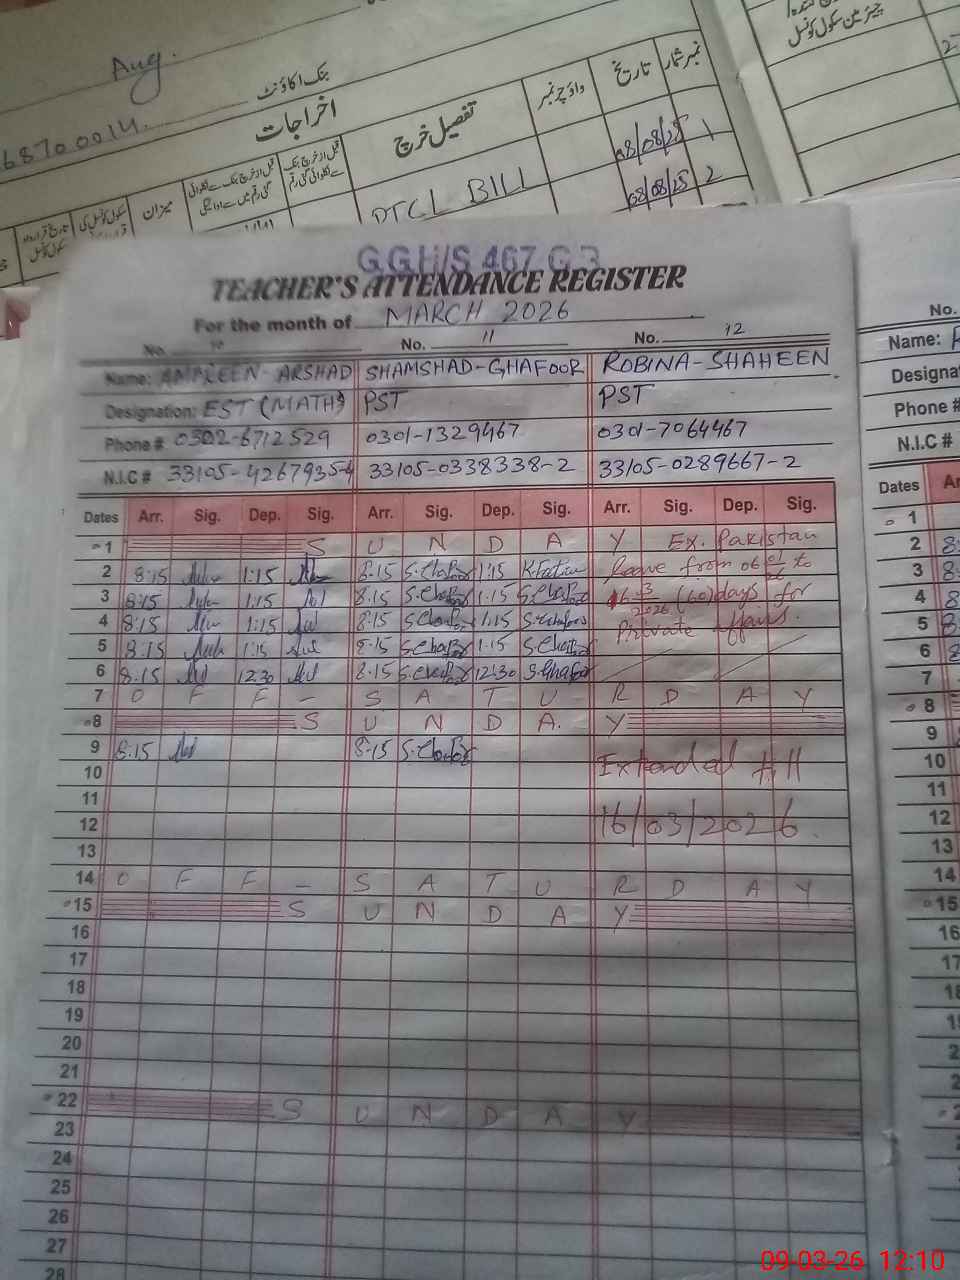 Aug.
68700014.
بنک اکاؤنٹ
اخراجات
چیئرمین سکول کونسل
نمبر شمار
تاریخ
واؤچر نمبر
تفصیل خرچ
میزان
08/08/25 1
PTCL BILL 08/08/25 2
GGH/S 467 G B
TEACHER'S ATTENDANCE REGISTER
For the month of MARCH 2026
No. 10 No. 11 No. 12
Name: AMBREEN-ARSHAD SHAMSHAD-GHAFOOR ROBINA-SHAHEEN
Designation: EST (MATH) PST PST
Phone # 0302-6712529 0301-1329467 0301-7064467
N.I.C # 33105-4267935-4 33105-0338338-2 33105-0289667-2
Dates Arr. Sig. Dep. Sig. Arr. Sig. Dep. Sig. Arr. Sig. Dep. Sig.
1 S U N D A Y Ex. Pakistan
2 8:15 1:15 8:15 S.Ghafoor 1:15 leave from 06 to
3 8:15 1:15 8:15 S.Ghafoor 1:15 S.Ghafoor 3/2026 (60) days for
4 8:15 1:15 8:15 S.Ghafoor 1:15 S.Ghafoor Private affairs.
5 8:15 1:15 8:15 S.Ghafoor 1:15 S.Ghafoor
6 8:15 12:30 8:15 S.Ghafoor 12:30 S.Ghafoor
7 O F F - S A T U R D A Y
8 S U N D A. Y
9 8:15 8:15 S.Ghafoor
10 Extended till
11
12 16/03/2026.
13
14 O F F - S A T U R D A Y
15 S U N D A Y
16
17
18
19
20
21
22 S U N D A Y
23
24
25
26
27
28
No.
Name:
Designa
Phone #
N.I.C #
Dates Ar
1
2 8:
3 8:
4 8:
5 8:
6 8:
7
8
9
10
11
12
13
14
15
16
17
18
19
09-03-26 12:10